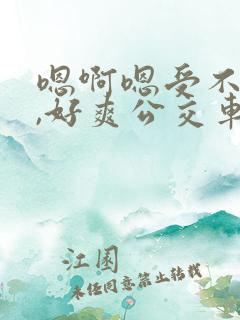 嗯啊嗯受不
,好爽公交车
江園
未任同意禁止转载